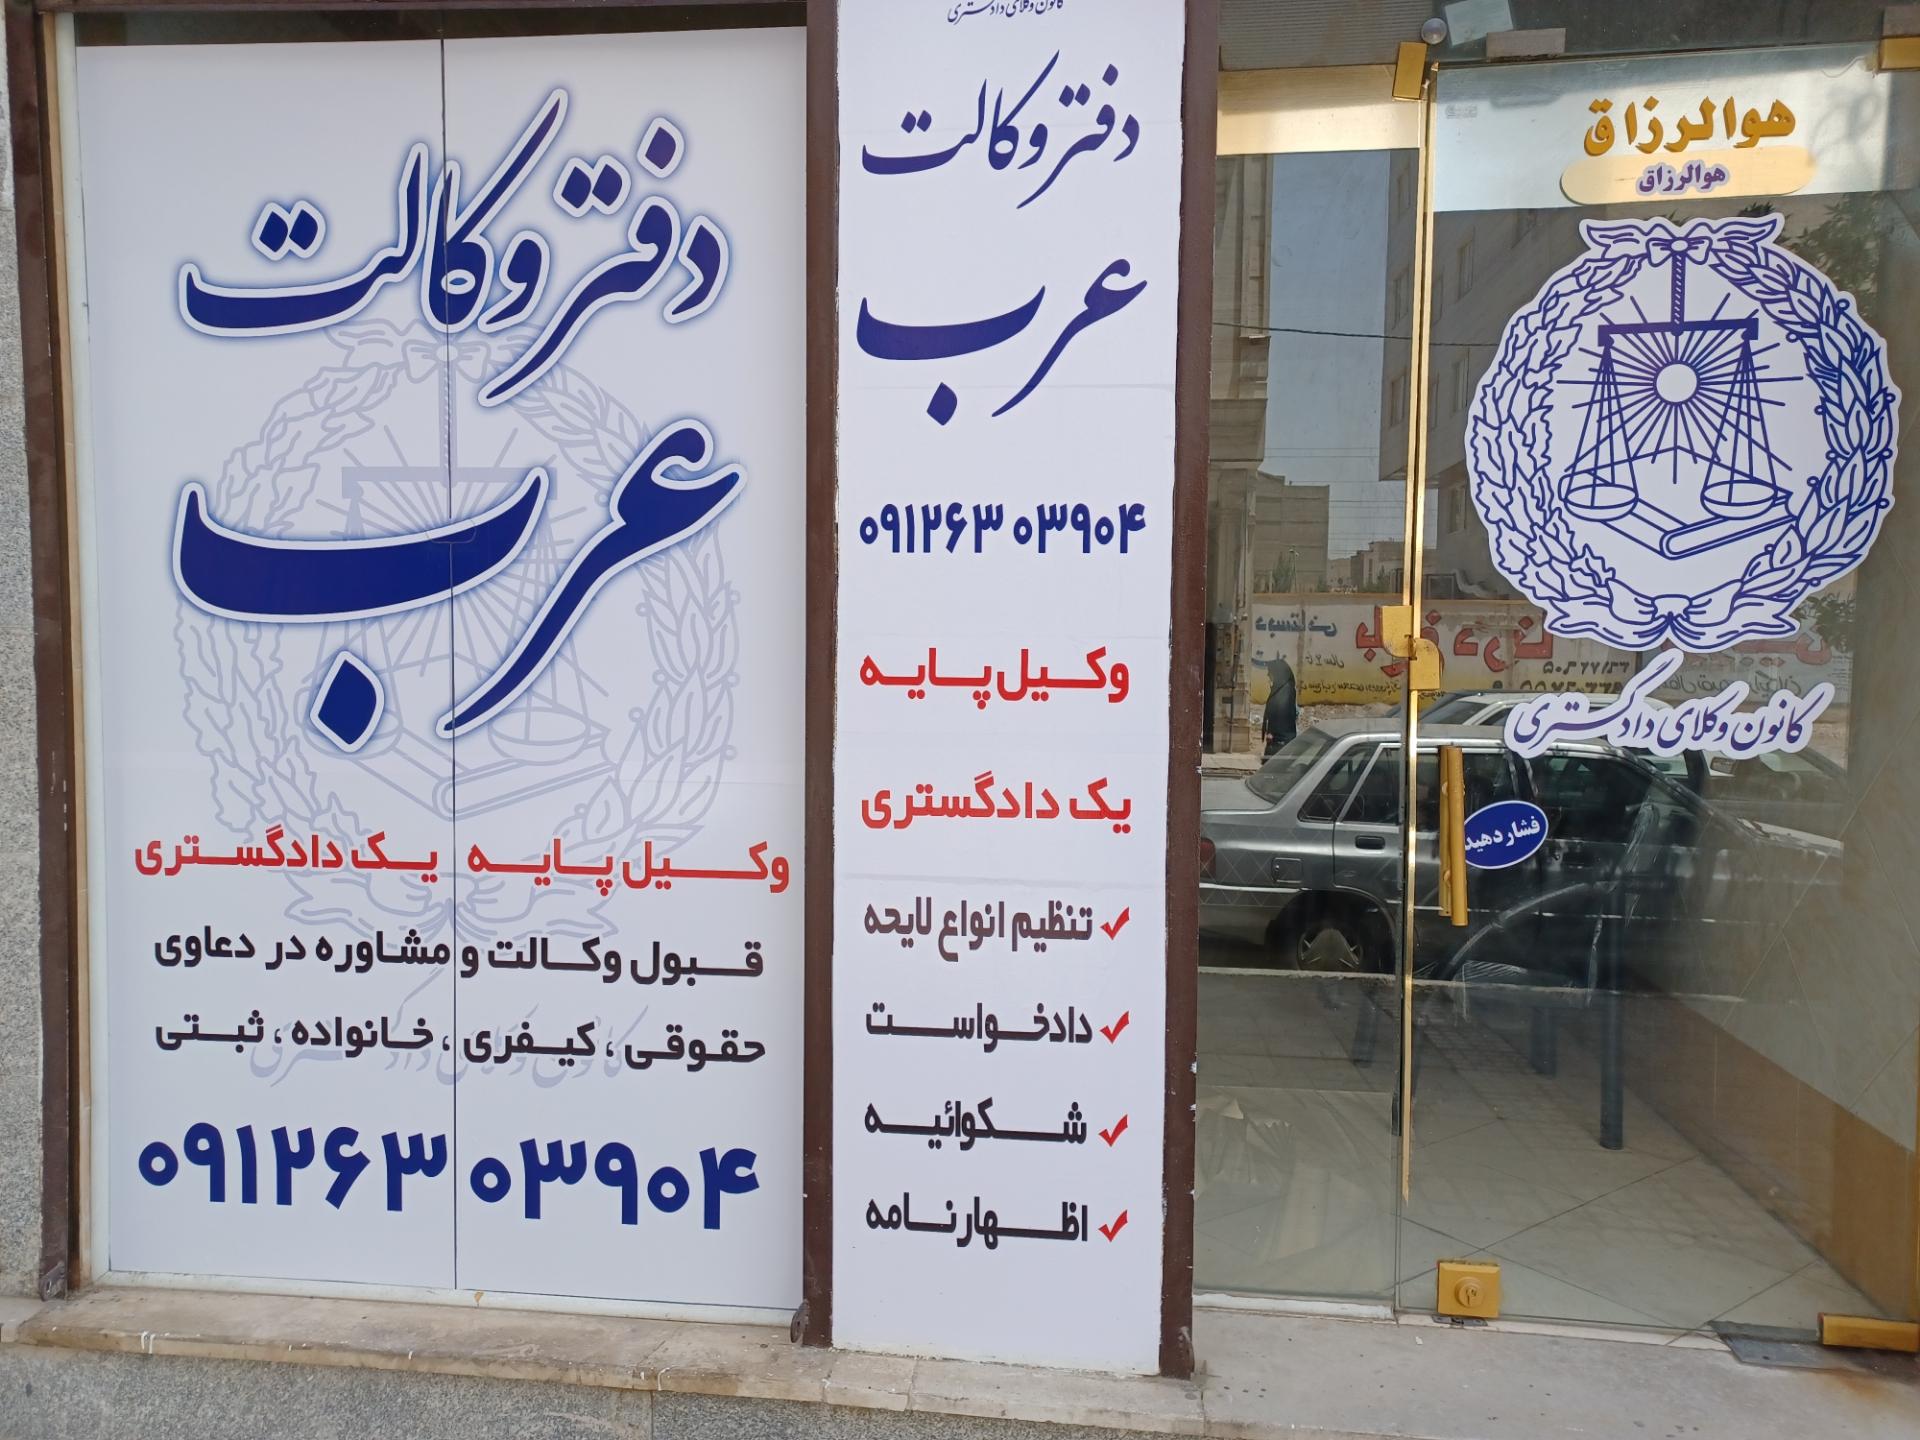 دفتر وکالت
عرب
وکیل پایه یک دادگستری
قبول وکالت و مشاوره در دعاوی
حقوقی ، کیفری ، خانواده ، ثبتی
۰۹۱۲۶۳ ۰۳۹۰۴
کانون وکلای دادگستری
دفتر وکالت
عرب
۰۹۱۲۶۳ ۰۳۹۰۴
وکیل پایه
یک دادگستری
تنظیم انواع لایحه
دادخواست
شکوائیه
اظهارنامه
هوالرزاق
هوالرزاق
کانون وکلای دادگستری
فشار دهید